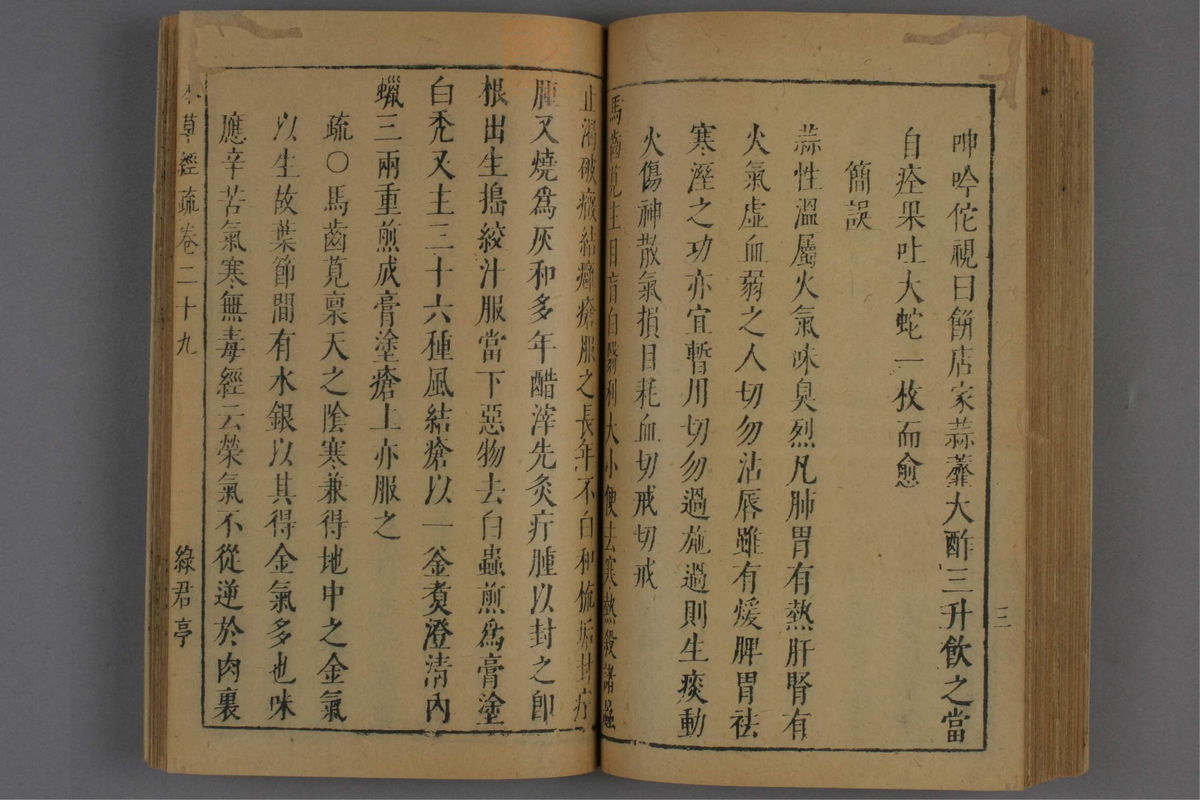 呻吟佗視曰餅店家蒜虀大酢三升飲之當
自痊果吐大蛇一枚而愈
簡誤
蒜性溫屬火氣味臭烈凡肺胃有熱肝腎有
火氣虛血弱之人切勿沾唇雖有煖脾胃祛
寒溼之功亦宜暫用切勿過施過則生痰動
火傷神散氣損目耗血切戒切戒
馬齒莧主目盲白瞖利大小便去寒熱殺諸蟲
止渴破癥結癰瘡服之長年不白和梳垢封疔
腫又燒為灰和多年醋滓先灸疔腫以封之即
根出生搗絞汁服當下惡物去白蟲煎為膏塗
白禿又主三十六種風結瘡以一釜煑澄清內
蠟三兩重煎成膏塗瘡上亦服之
疏〇馬齒莧稟天之陰寒兼得地中之金氣
以生故葉節間有水銀以其得金氣多也味
應辛苦氣寒無毒經云榮氣不從逆於肉裏
本草經疏卷二十九
綠君亭
三